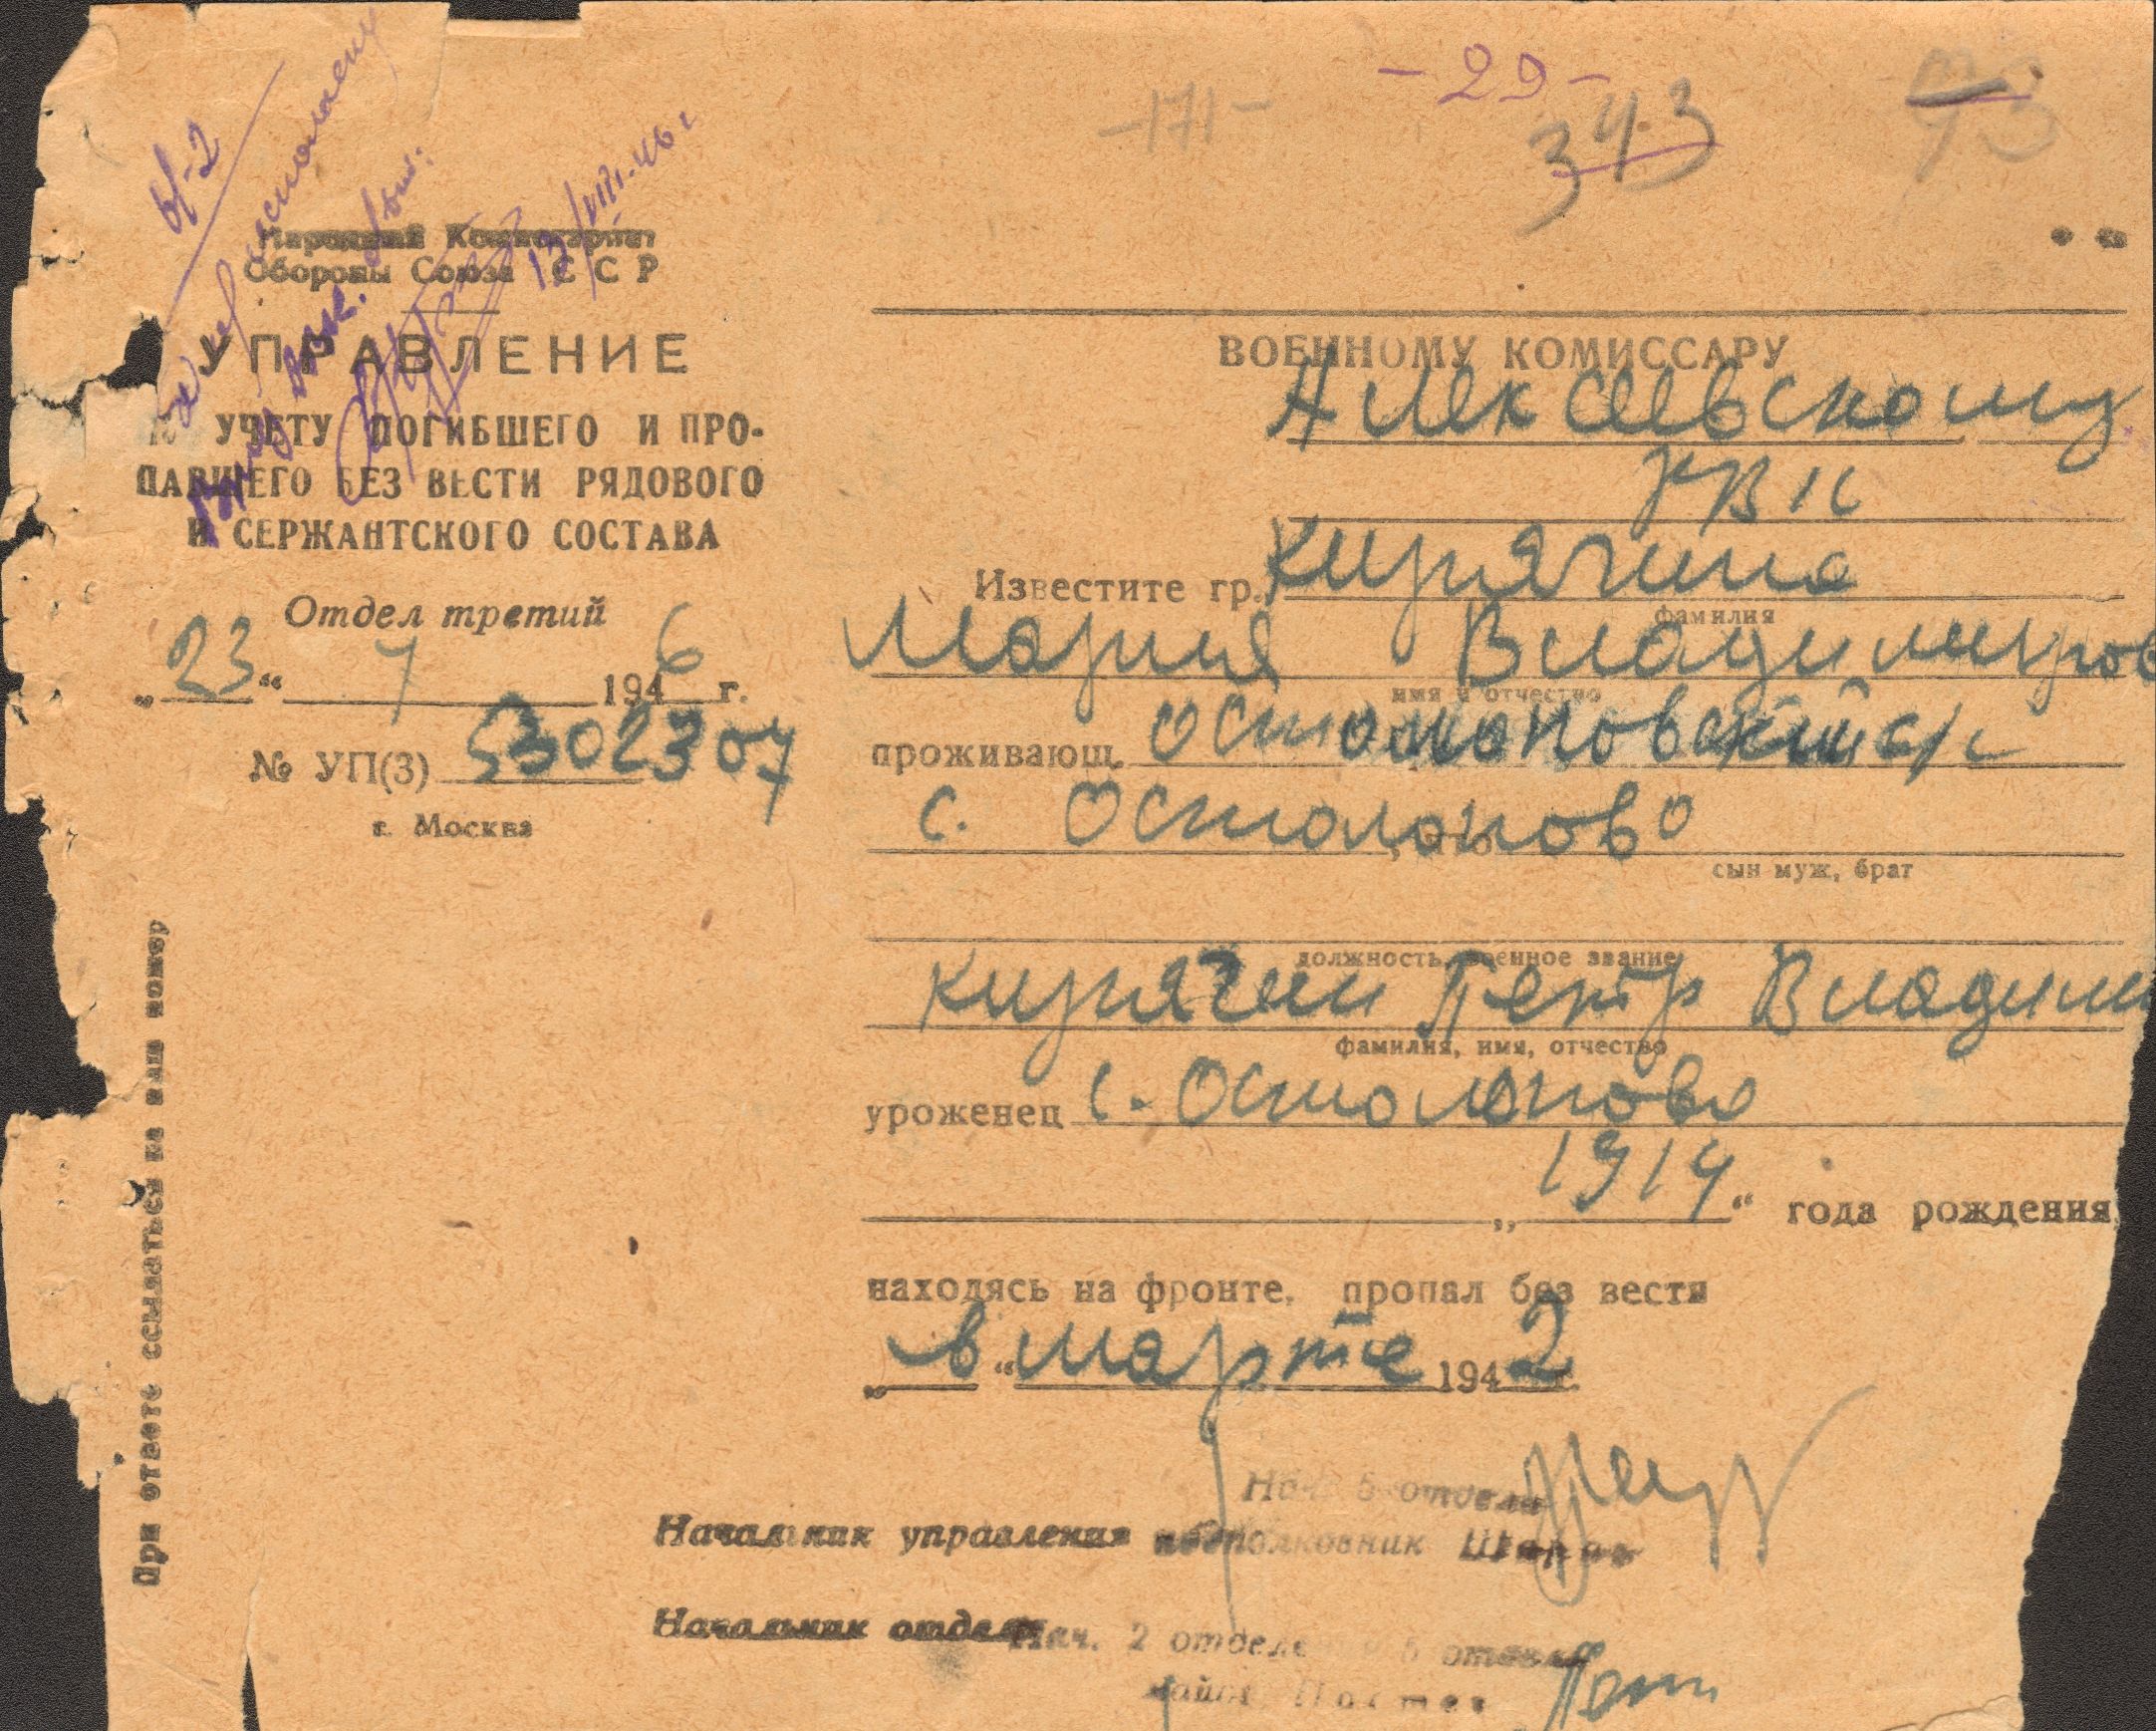 - 29 -
- 171 -
343
13/VIII-46 г
Народный Комиссариат
Обороны Союза ССР
УПРАВЛЕНИЕ
ПО УЧЕТУ ПОГИБШЕГО И ПРО-
ПАВШЕГО БЕЗ ВЕСТИ РЯДОВОГО
И СЕРЖАНТСКОГО СОСТАВА
Отдел третий
„23“ 7 1946 г.
№ УП(3) 5302307
г. Москва
При ответе ссылаться на наш номер
ВОЕННОМУ КОМИССАРУ
Алексеевскому
РВК
Известите гр. Кирягина
фамилия
Мария Владимиров
имя и отчество
проживающ. Остолоповский с/с
с. Остолопово
, что
сын муж, брат
должность, военное звание
Кирягин Петр Владим
фамилия, имя, отчество
уроженец с. Остолопово
„1914“ года рождения,
находясь на фронте, пропал без вести
„в“ марте 1942 г.
Нач. 5 отдела
Начальник управления подполковник
Начальник отдела Нач. 2 отделения 5 отдела
майор